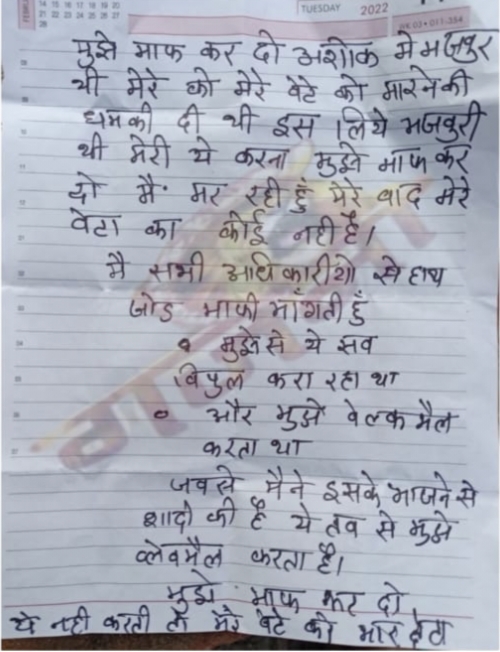 TUESDAY 2022
14 15 16 17 18 19 20
21 22 23 24 25 26 27
28
WK 03 • 011-354
मुझे माफ कर दो अशोक मे मजबुर
थी मेरे को मेरे बेटे को मारने की
धमकी दी थी इस लिये मजबुरी
थी मेरी ये करना मुझे माफ कर
दो मै मर रही हुं मेरे बाद मेरे
बेटा का कोई नही है।
मै सभी अधिकारीगो से हाथ
जोड माफी माँगती हुँ
मुझेसे ये सब
विपुल करा रहा था
और मुझे वेलकमैल
करता था
जबसे मैने इसके भाजने से
शादी की है ये तब से मुझे
ब्लेवमैल करता है।
मुझे माफ कर दो
ये नही करती तो मेरे बेटे को मार देता